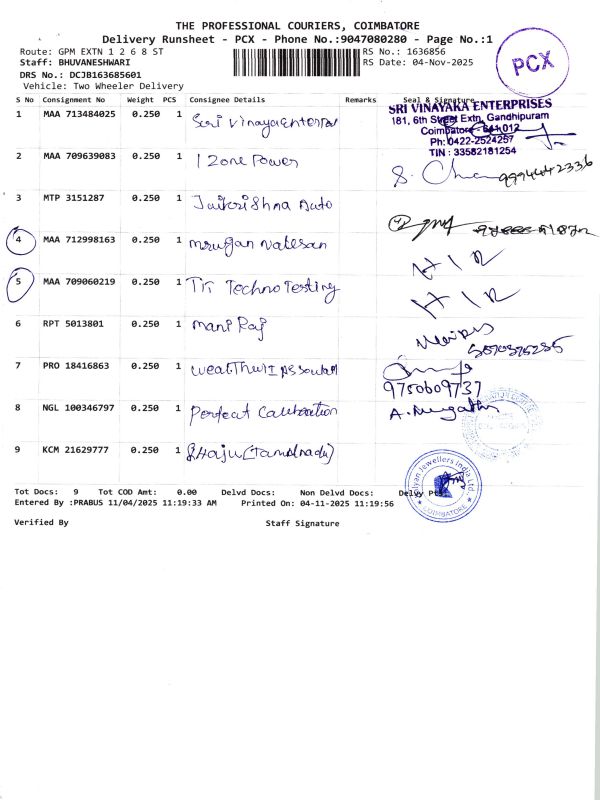 THE PROFESSIONAL COURIERS, COIMBATORE
Delivery Runsheet - PCX - Phone No.:9047080280 - Page No.:1
Route: GPM EXTN 1 2 6 8 ST
RS No.: 1636856
PCX
Staff: BHUVANESHWARI
RS Date: 04-Nov-2025
DRS No.: DCJB163685601
Vehicle: Two Wheeler Delivery
S No Consignment No Weight PCS Consignee Details Remarks Seal & Signature
SRI VINAYAKA ENTERPRISES
181, 6th Street Extn, Gandhipuram
Coimbatore - 641 012
Ph: 0422-2524257
TIN : 33582181254
1 MAA 713484025 0.250 1 Sri Vinayaka
2 MAA 709639083 0.250 1 I Zone Power
3 MTP 3151287 0.250 1 Jaikrishna Auto
4 MAA 712998163 0.250 1 Murugan Natesan
5 MAA 709060219 0.250 1 Techno Testing
6 RPT 5013801 0.250 1 Mani Raj
7 PRO 18416863 0.250 1
9750609737
8 NGL 100346797 0.250 1 Perfect Calibration
9 KCM 21629777 0.250 1 (Tamilnadu)
Jewellers India Ltd.
COIMBATORE
Tot Docs: 9 Tot COD Amt: 0.00 Delvd Docs: Non Delvd Docs: Delvy
Entered By :PRABUS 11/04/2025 11:19:33 AM Printed On: 04-11-2025 11:19:56
Verified By Staff Signature